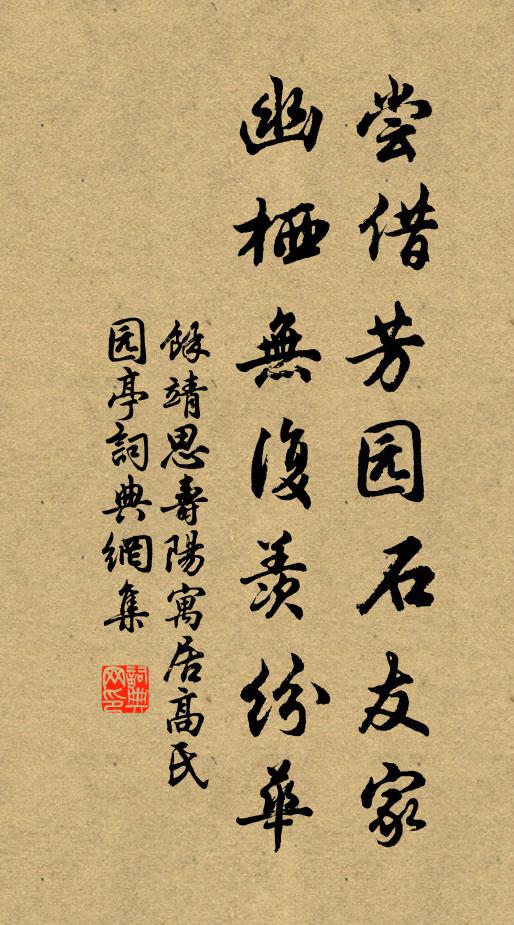 尝借芳园石友家
幽栖無復羨紛華
餘靖思壽陽寓居高氏
园亭詞典網集
詞典
网印